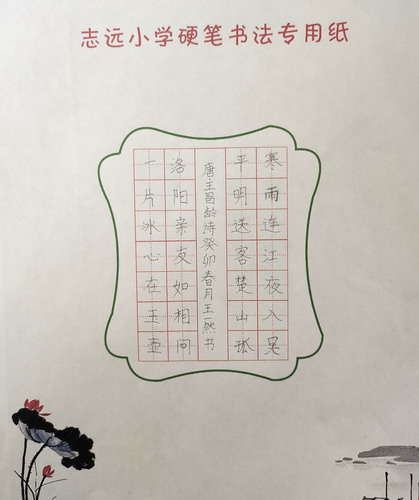 志远小学硬笔书法专用纸
寒雨连江夜入吴
平明送客楚山孤
唐王昌龄诗癸卯春月王一然书
洛阳亲友如相问
一片冰心在玉壶